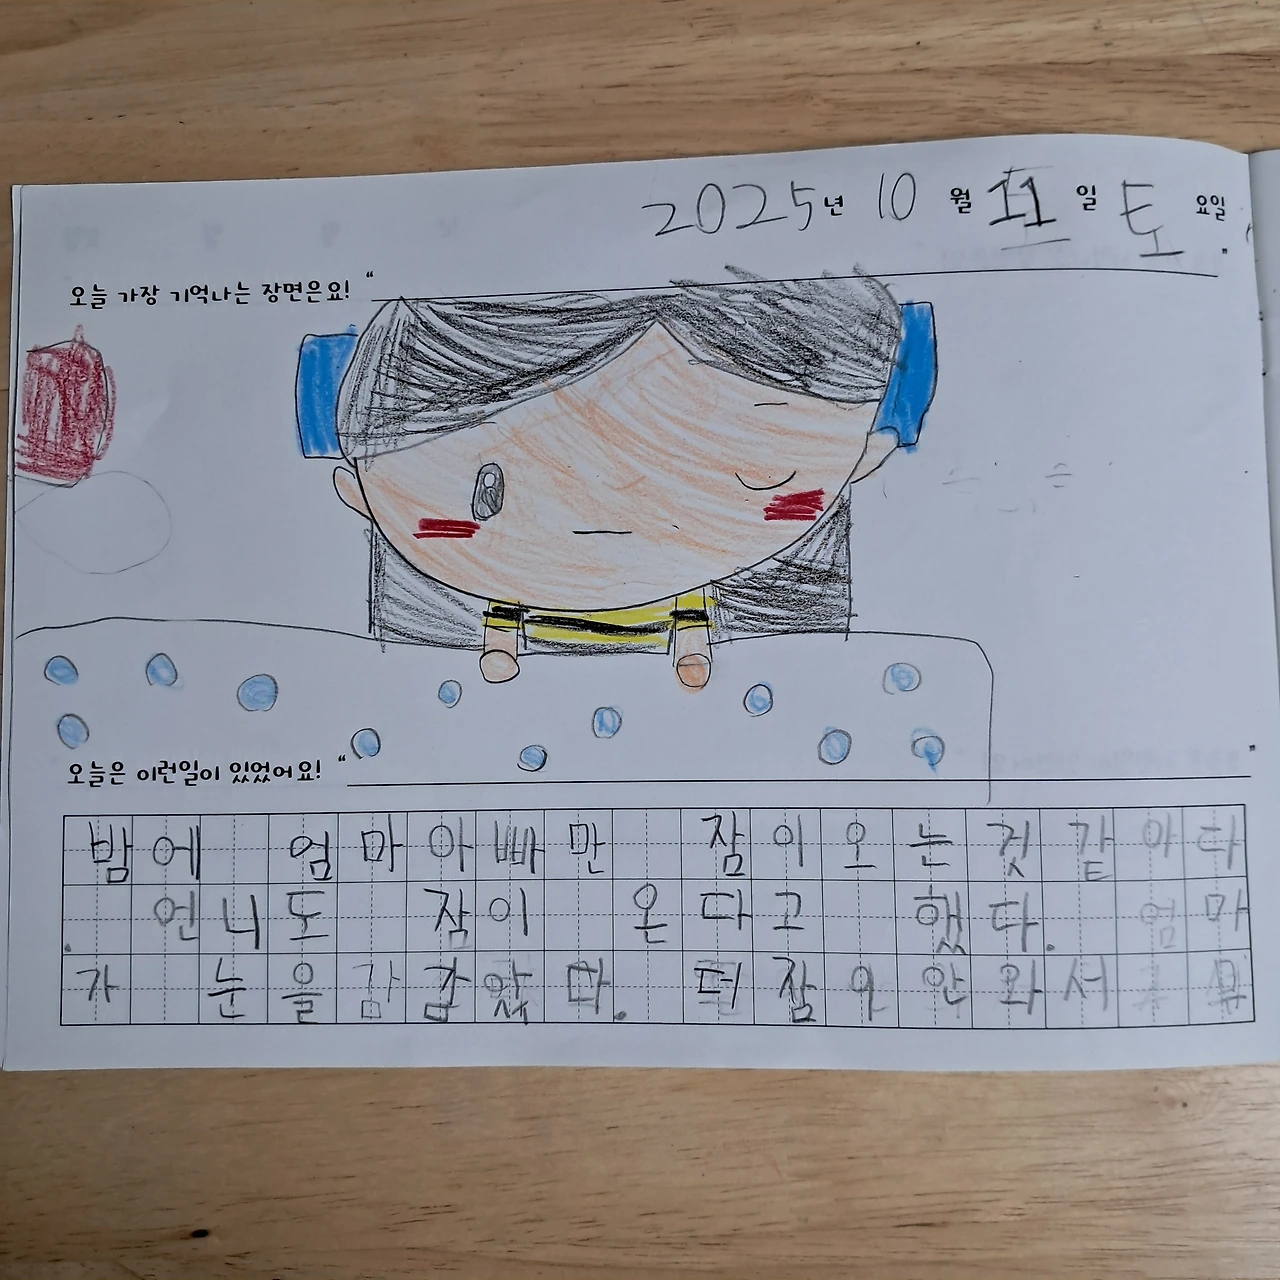 2025년 10월 11일 토요일
오늘 가장 기억나는 장면은요! “ ”
오늘은 이런일이 있었어요! “ ”
밤에 엄마아빠만 잠이오는것 같아다
. 언니도 잠이 온다고 했다. 엄마
가 눈을 감았다. 더 잠이 안와서